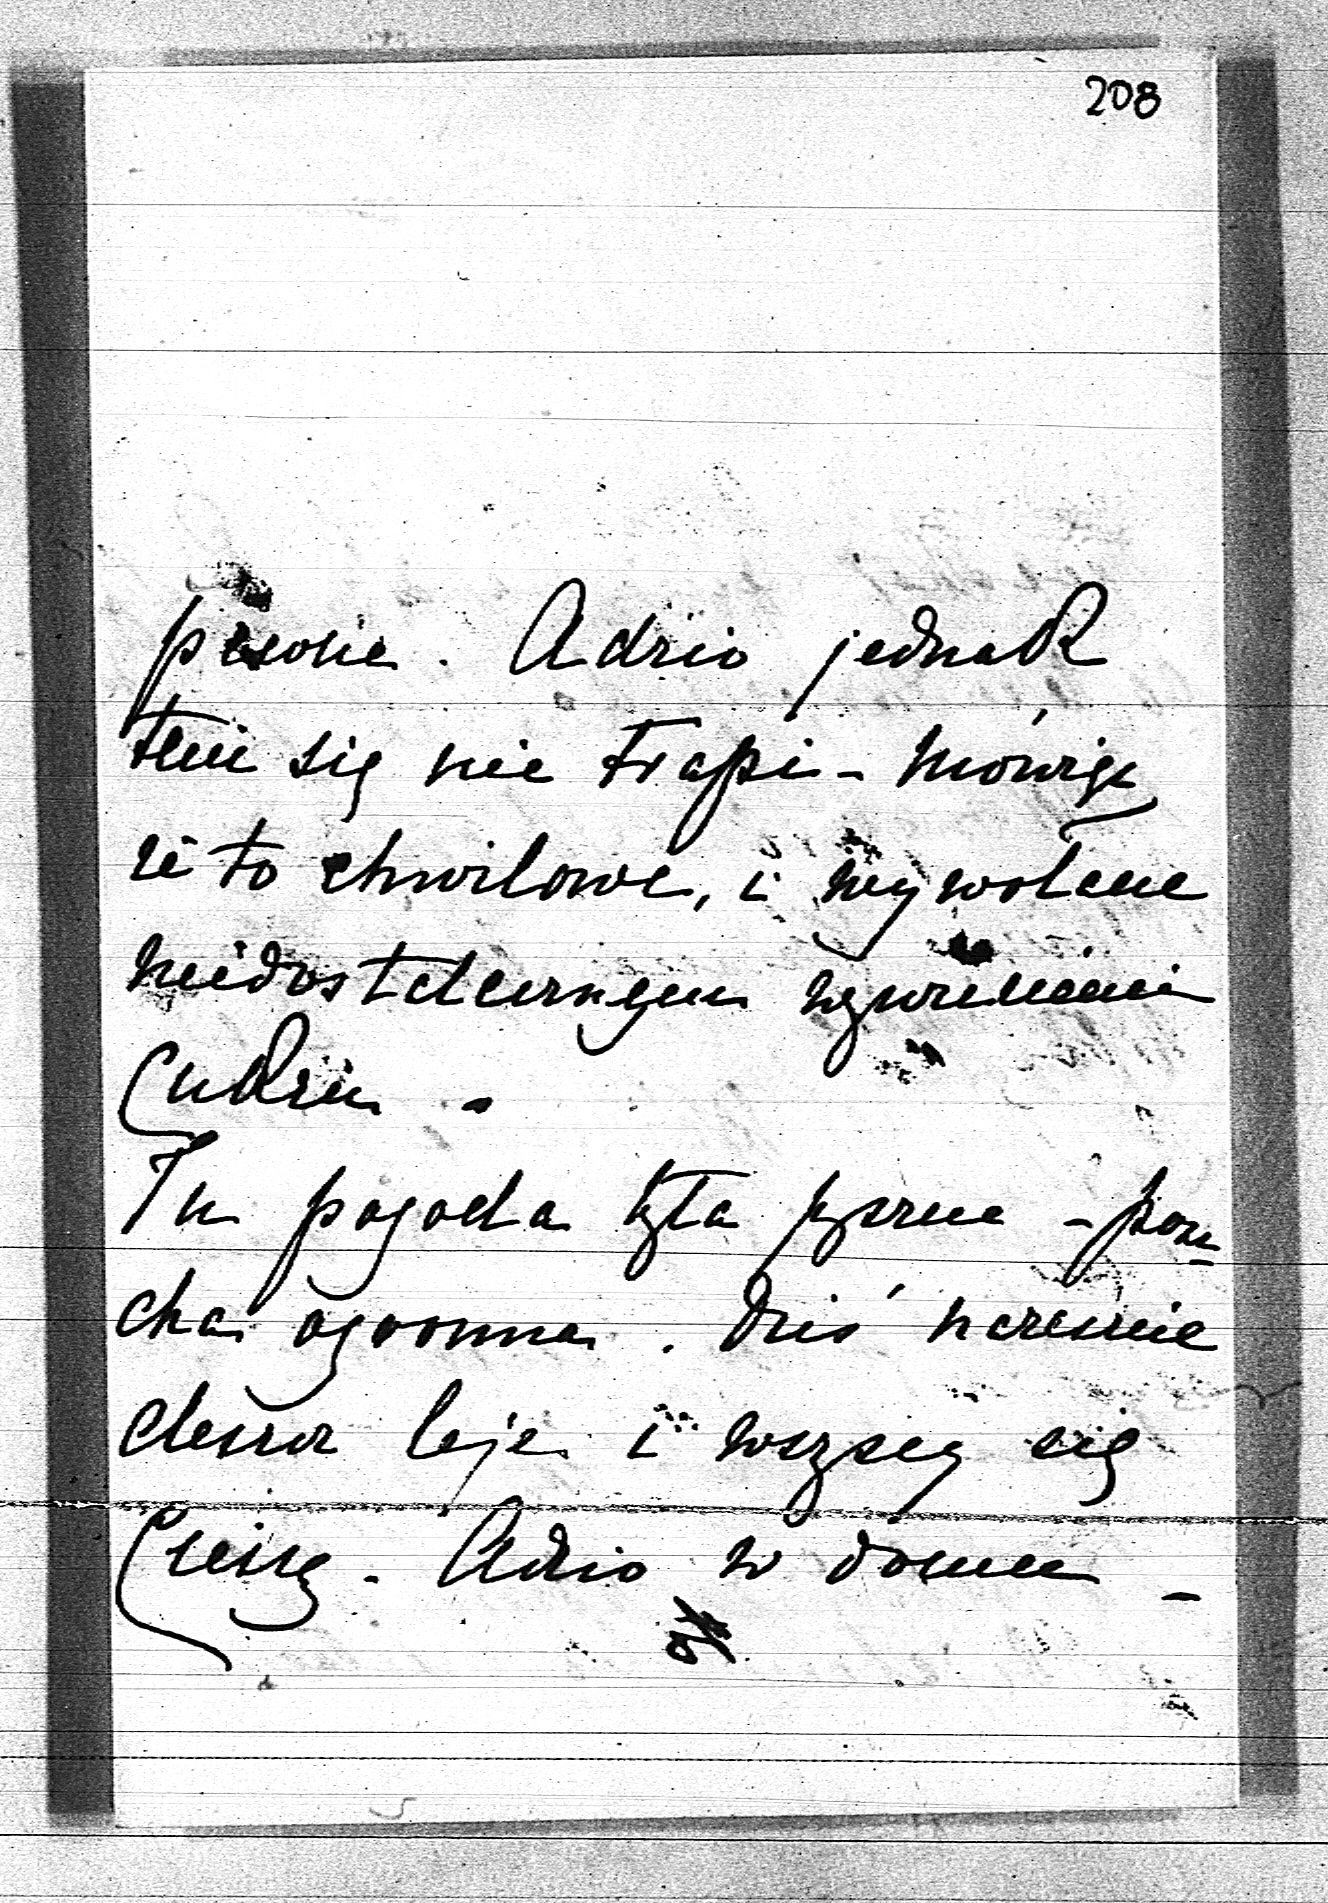 208
prawie. Adzio jednak
tem się nie trapi – mówiąc
że to chwilowe, i wywołane
niedostatecznym zgnieceniem
Cukru.
Tu pogoda była piękna – posu-
cha ogromna. Dziś nareszcie
deszcz leje i wszyscy się
Cieszą. Adzio w domu –